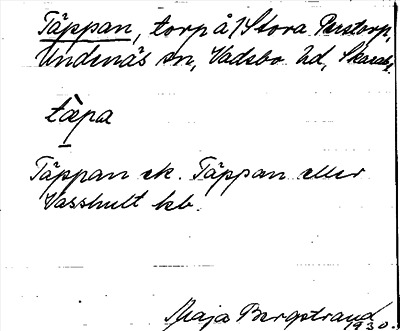 Täppan, torp å 1 Stora Perstorp,
Undenäs sn, Vadsbo hd, Skarab. l.
tæ̀pa
Täppan ek. Täppan eller
Vasshult kb.
Maja Bergstrand
1930.